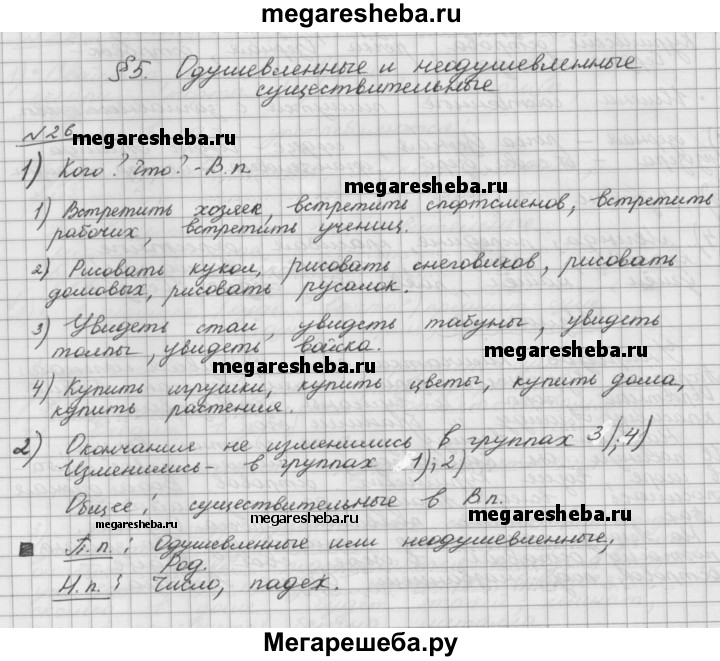 megaresheba.ru
§5. Одушевленные и неодушевленные
существительные
№26
megaresheba.ru
1) Кого? Что? - В.п.
megaresheba.ru
1) Встретить хозяек, встретить спортсменов, встретить
рабочих, встретить учениц.
2) Рисовать кукол, рисовать снеговиков, рисовать
домовых, рисовать русалок.
3) Увидеть стаи, увидеть табуны, увидеть
толпы, увидеть войска.
megaresheba.ru
megaresheba.ru
4) Купить игрушки, купить цветы, купить дома,
купить растения.
2) Окончания не изменились в группах 3); 4)
Изменились - в группах 1); 2)
Общее: существительные в В.п.
megaresheba.ru
megaresheba.ru
megaresheba.ru
П.п.: Одушевленные или неодушевленные,
Род.
Н.п.: Число, падеж.
Мегарешеба.ру